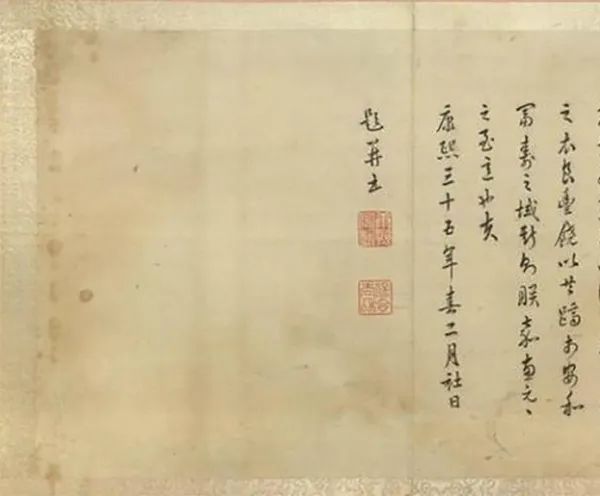 之衣食豐饒以共躋於安和
富壽之域斯則朕嘉惠元々
之至意也夫
康熙三十五年春二月社日
題并書